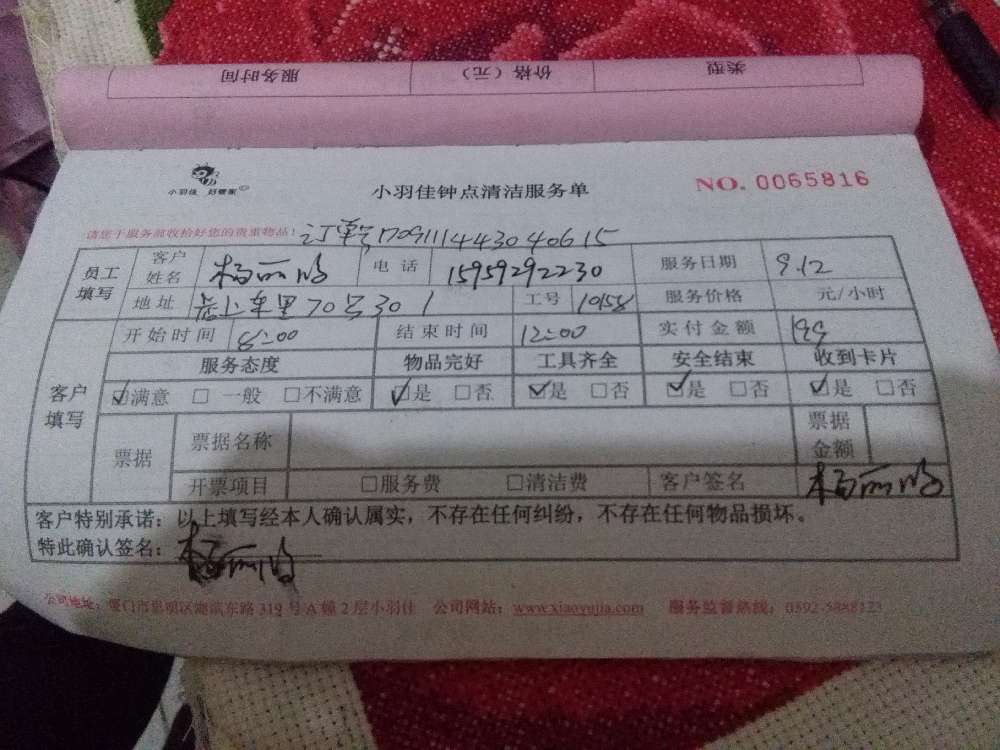 服务时间 价格（元） 类型
小羽佳 好管家
小羽佳钟点清洁服务单
NO. 0065816
请您于服务前收拾好您的贵重物品！ 订单号1709111443040615
员工填写 客户姓名 杨丽鸿 电话 15959292230 服务日期 9.12
地址 70号301 工号 10158 服务价格 元/小时
客户填写 开始时间 8:00 结束时间 12:00 实付金额 199
服务态度 物品完好 工具齐全 安全结束 收到卡片
☑满意 □一般 □不满意 ☑是 □否 ☑是 □否 ☑是 □否 ☑是 □否
票据 票据名称 票据金额
开票项目 □服务费 □清洁费 客户签名 杨丽鸿
客户特别承诺：以上填写经本人确认属实，不存在任何纠纷，不存在任何物品损坏。
特此确认签名： 杨丽鸿
公司地址：厦门市思明区湖滨东路319号A幢2层小羽佳 公司网站：www.xiaoyujia.com 服务监督热线：0592-5888123